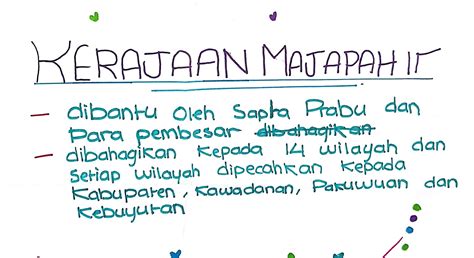 KERAJAAN MAJAPAHIT
— dibantu oleh Sapta Prabu dan
Para pembesar dibahagikan
— dibahagikan kepada 14 wilayah dan
Setiap wilayah dipecahkan kepada
Kabupaten, Kawadanan, Pakuwuan dan
Kebuyutan